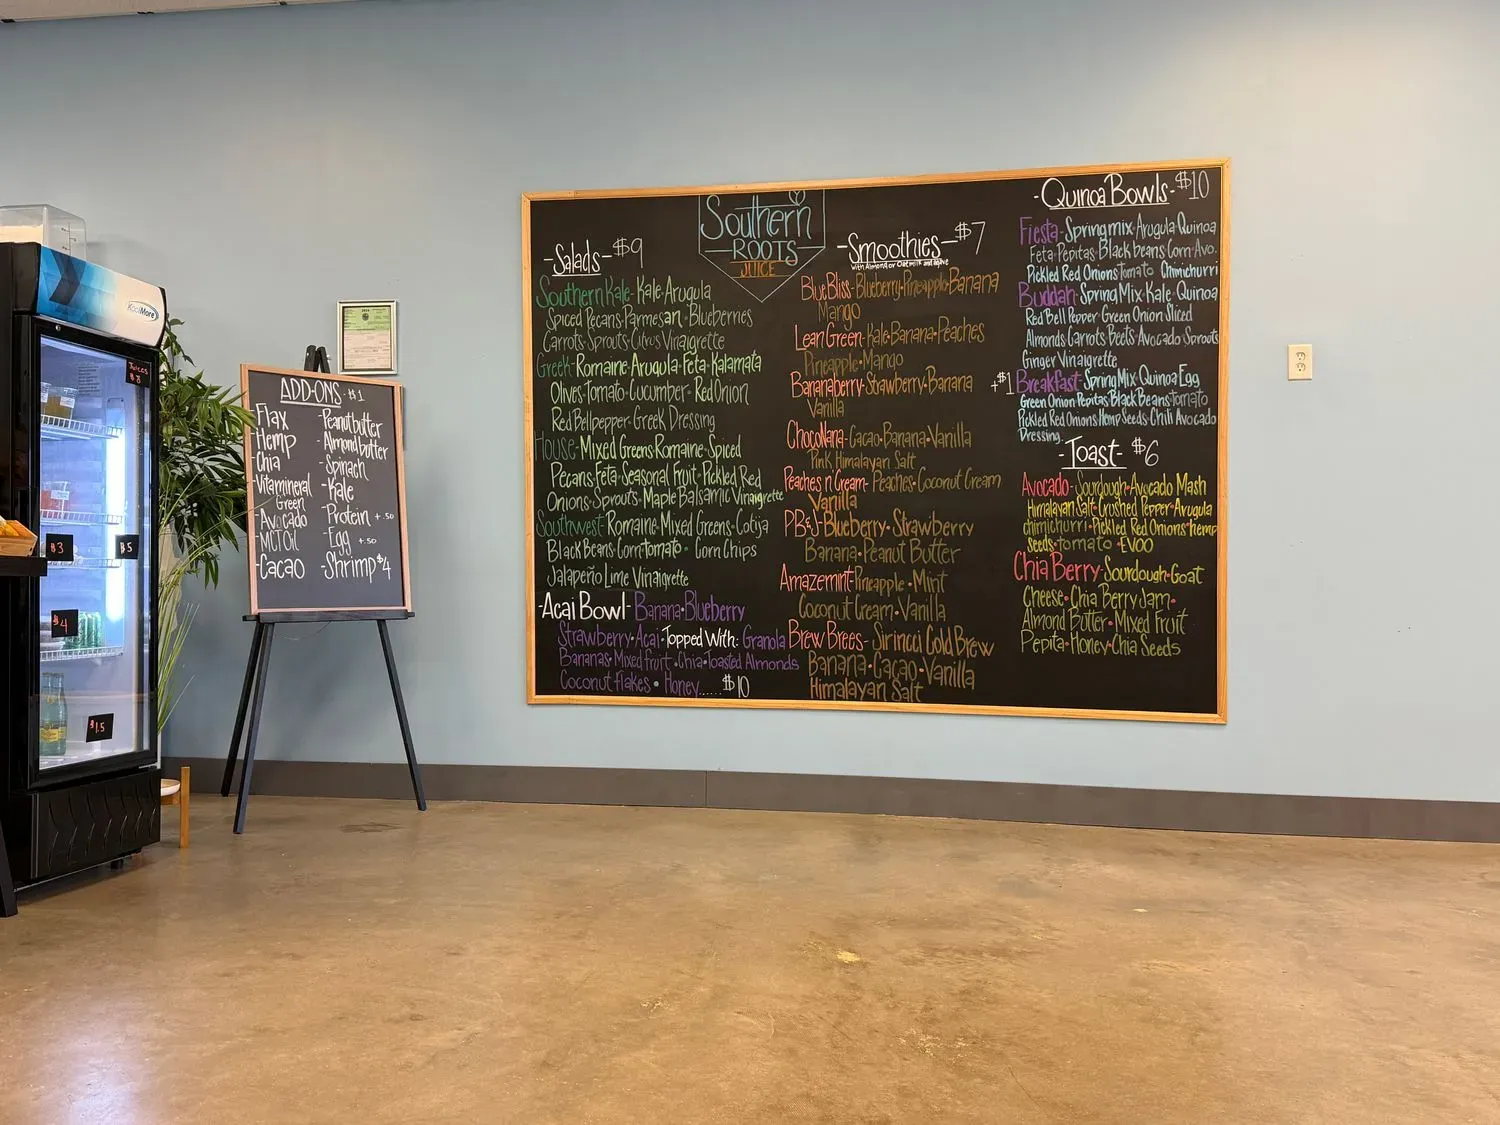 KoolMore
Juices
$8
$3
$5
$4
$1.5
ADD-ONS - $1
Flax
Hemp
Chia
Vitamineral
Green
-Avocado
-MCT Oil
-Cacao
-Peanut butter
-Almond butter
-Spinach
-Kale
-Protein +.50
-Egg +.50
-Shrimp $4
Southern
ROOTS
JUICE
-Salads- $9
Southern Kale- Kale·Arugula
Spiced Pecans·Parmesan·Blueberries
Carrots·Sprouts·Citrus Vinaigrette
Greek-Romaine·Arugula·Feta·Kalamata
Olives·Tomato·Cucumber·Red Onion
Red Bellpepper·Greek Dressing
House-Mixed Greens·Romaine·Spiced
Pecans·Feta·Seasonal Fruit·Pickled Red
Onions·Sprouts·Maple Balsamic Vinaigrette
Southwest-Romaine·Mixed Greens·Cotija
Black Beans·Corn·Tomato· Corn Chips
Jalapeño Lime Vinaigrette
-Acai Bowl- Banana·Blueberry
Strawberry·Acai·Topped With: Granola
Bananas·Mixed fruit·Chia·Toasted Almonds
Coconut flakes · Honey...... $10
-Smoothies- $7
with Almond or Oatmilk and agave
Blue Bliss- Blueberry·Pineapple·Banana
Mango
Lean Green- Kale·Banana·Peaches
Pineapple·Mango
Bananaberry-Strawberry·Banana
Vanilla
ChocoNana-Cacao·Banana·Vanilla
Pink Himalayan Salt
Peaches n Cream- Peaches·Coconut Cream
Vanilla
PB&J-Blueberry·Strawberry
Banana·Peanut Butter
Amazemint-Pineapple·Mint
Coconut Cream·Vanilla
Brew Brees- Sirincci Cold Brew
Banana·Cacao·Vanilla
Himalayan Salt
-Quinoa Bowls- $10
Fiesta-Spring mix·Arugula·Quinoa
Feta·Pepitas·Black beans·Corn·Avo.
Pickled Red Onions Tomato Chimichurri
Buddah-Spring Mix·Kale·Quinoa
Red Bell Pepper·Green Onion Sliced
Almonds Carrots Beets·Avocado·Sprouts
Ginger Vinaigrette
+$1 Breakfast-Spring Mix·Quinoa Egg
Green Onion·Pepitas·Black Beans·Tomato
Pickled Red Onions·Hemp Seeds·Chili Avocado
Dressing
-Toast- $6
Avocado-Sourdough·Avocado Mash
Himalayan Salt·Crushed Pepper·Arugula
chimichurri·Pickled Red Onions·hemp
seeds·tomato +EVOO
Chia Berry-Sourdough·Goat
Cheese·Chia Berry Jam·
Almond Butter·Mixed Fruit
Pepita·Honey·Chia Seeds